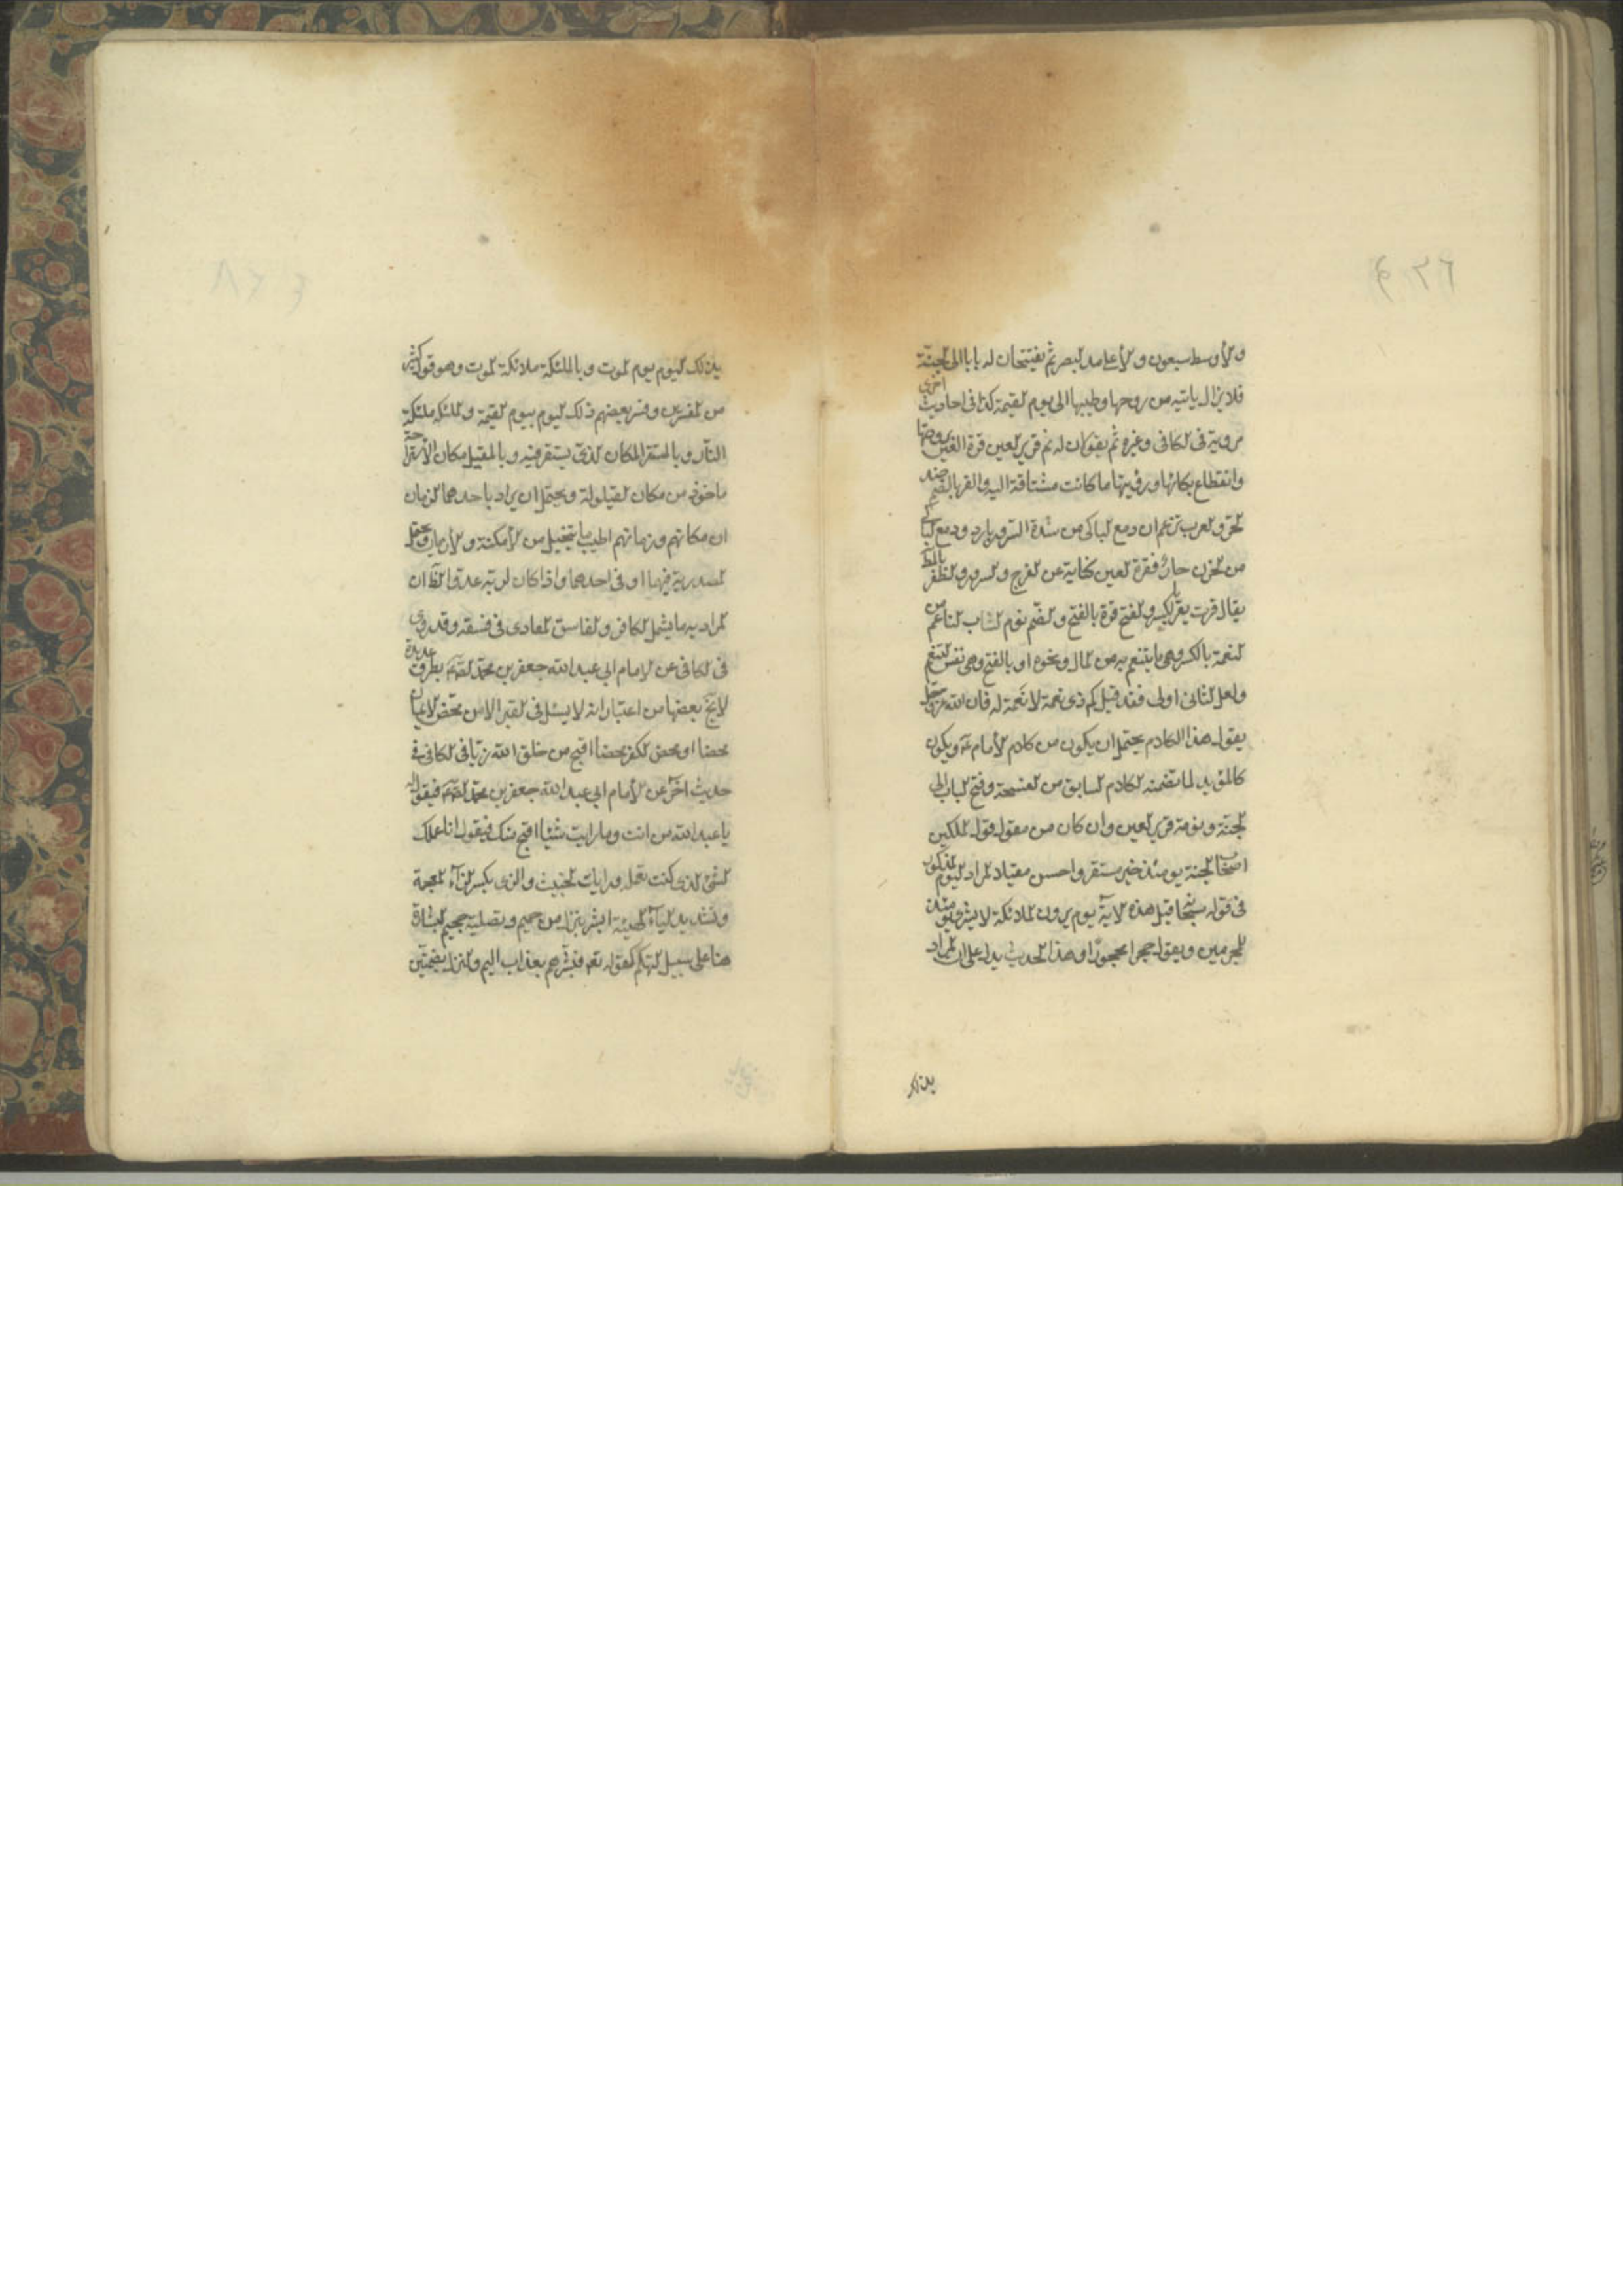 والأوسط سبعون والأعلى مد البصر ثم يفتحان له بابا الى الجنة
فلا يزال ياتيه من روحها وطيبها الى يوم القيمة كذا فى احاديث اخرى
مروية فى الكافى وغيره ثم يقولان له نم قرير العين قرة العين برودتها
وانقطاع بكائها ورؤيتها ما كانت مشتاقة اليه والقر بالضم ضد
الحر والعرب تزعم ان دمع الباكى من شدة السرور بارد ودمع الباكى
من الحزن حار فقرة العين كناية عن الفرج والسرور والظفر بالمط
يقال قرت تقر بالكسر والفتح قرة بالفتح والضم نوم الشاب الناعم من
النعمة بالكسر وهى ما يتنعم به من المال ونحوه او بالفتح وهى نفس التنعم
ولعل الثانى اولى فقد قيل كم ذى نعمة لا نعمة له فان الله عز وجل
يقول هذا الكلام يحتمل ان يكون من كلام الأمام ع ويكون
كالمؤيد لما تضمنه الكلام السابق من الفسحة وفتح الباب الى
الجنة ونومة قرير العين وان كان من مقول قول الملكين
اصحاب الجنة يومئذ خير مستقرا واحسن مقيلا المراد اليوم المذكور
فى قوله سبحا قبل هذه الاية يوم يرون الملائكة لا بشرى يومئذ
للمجرمين ويقولون حجرا محجورا وهذا الحديث يدل على ان المراد
بذلك
بذلك اليوم يوم الموت وبالملئكة ملائكة الموت وهو قول كثير
من المفسرين وفسر بعضهم ذلك اليوم بيوم القيمة والملئكة بملئكة
النار وبالمستقر المكان الذى يستقر فيه وبالمقيل مكان الاستراحة
ماخوذ من مكان القيلولة ويحتمل ان يراد باحدهما الزمان
ان مكانهم وزمانهم اطيب ما يتخيل من الأمكنة والأزمان ويحتمل
المصدرية فيهما او فى احدهما واذا كان لربه عدوا الظ ان
المراد به ما يشمل الكافر والفاسق المتمادى فى فسقه وقد روى
فى الكافى عن الامام ابي عبد الله جعفر بن محمد الصادق ع بطرق عديدة
لا يخ بعضها من اعتبار انه لا يسئل فى القبر الا من محض الايمان
محضا او محض الكفر محضا اقبح من خلق الله زيا فى الكافى فى
حديث آخر عن الأمام ابي عبد الله جعفر بن محمد الصادق ع فيقول له
يا عبد الله من انت وما رايت شيئا اقبح منك فيقول انا عملك
السئ الذى كنت تعمله ورايك الخبيث والزى بكسر الزاء المعجمة
وتشديد الياء الهيئة ابشر بنزل من حميم وتصلية جحيم البشارة
هنا على سبيل التهكم كقوله تعالى فبشرهم بعذاب اليم والنزل بضمتين